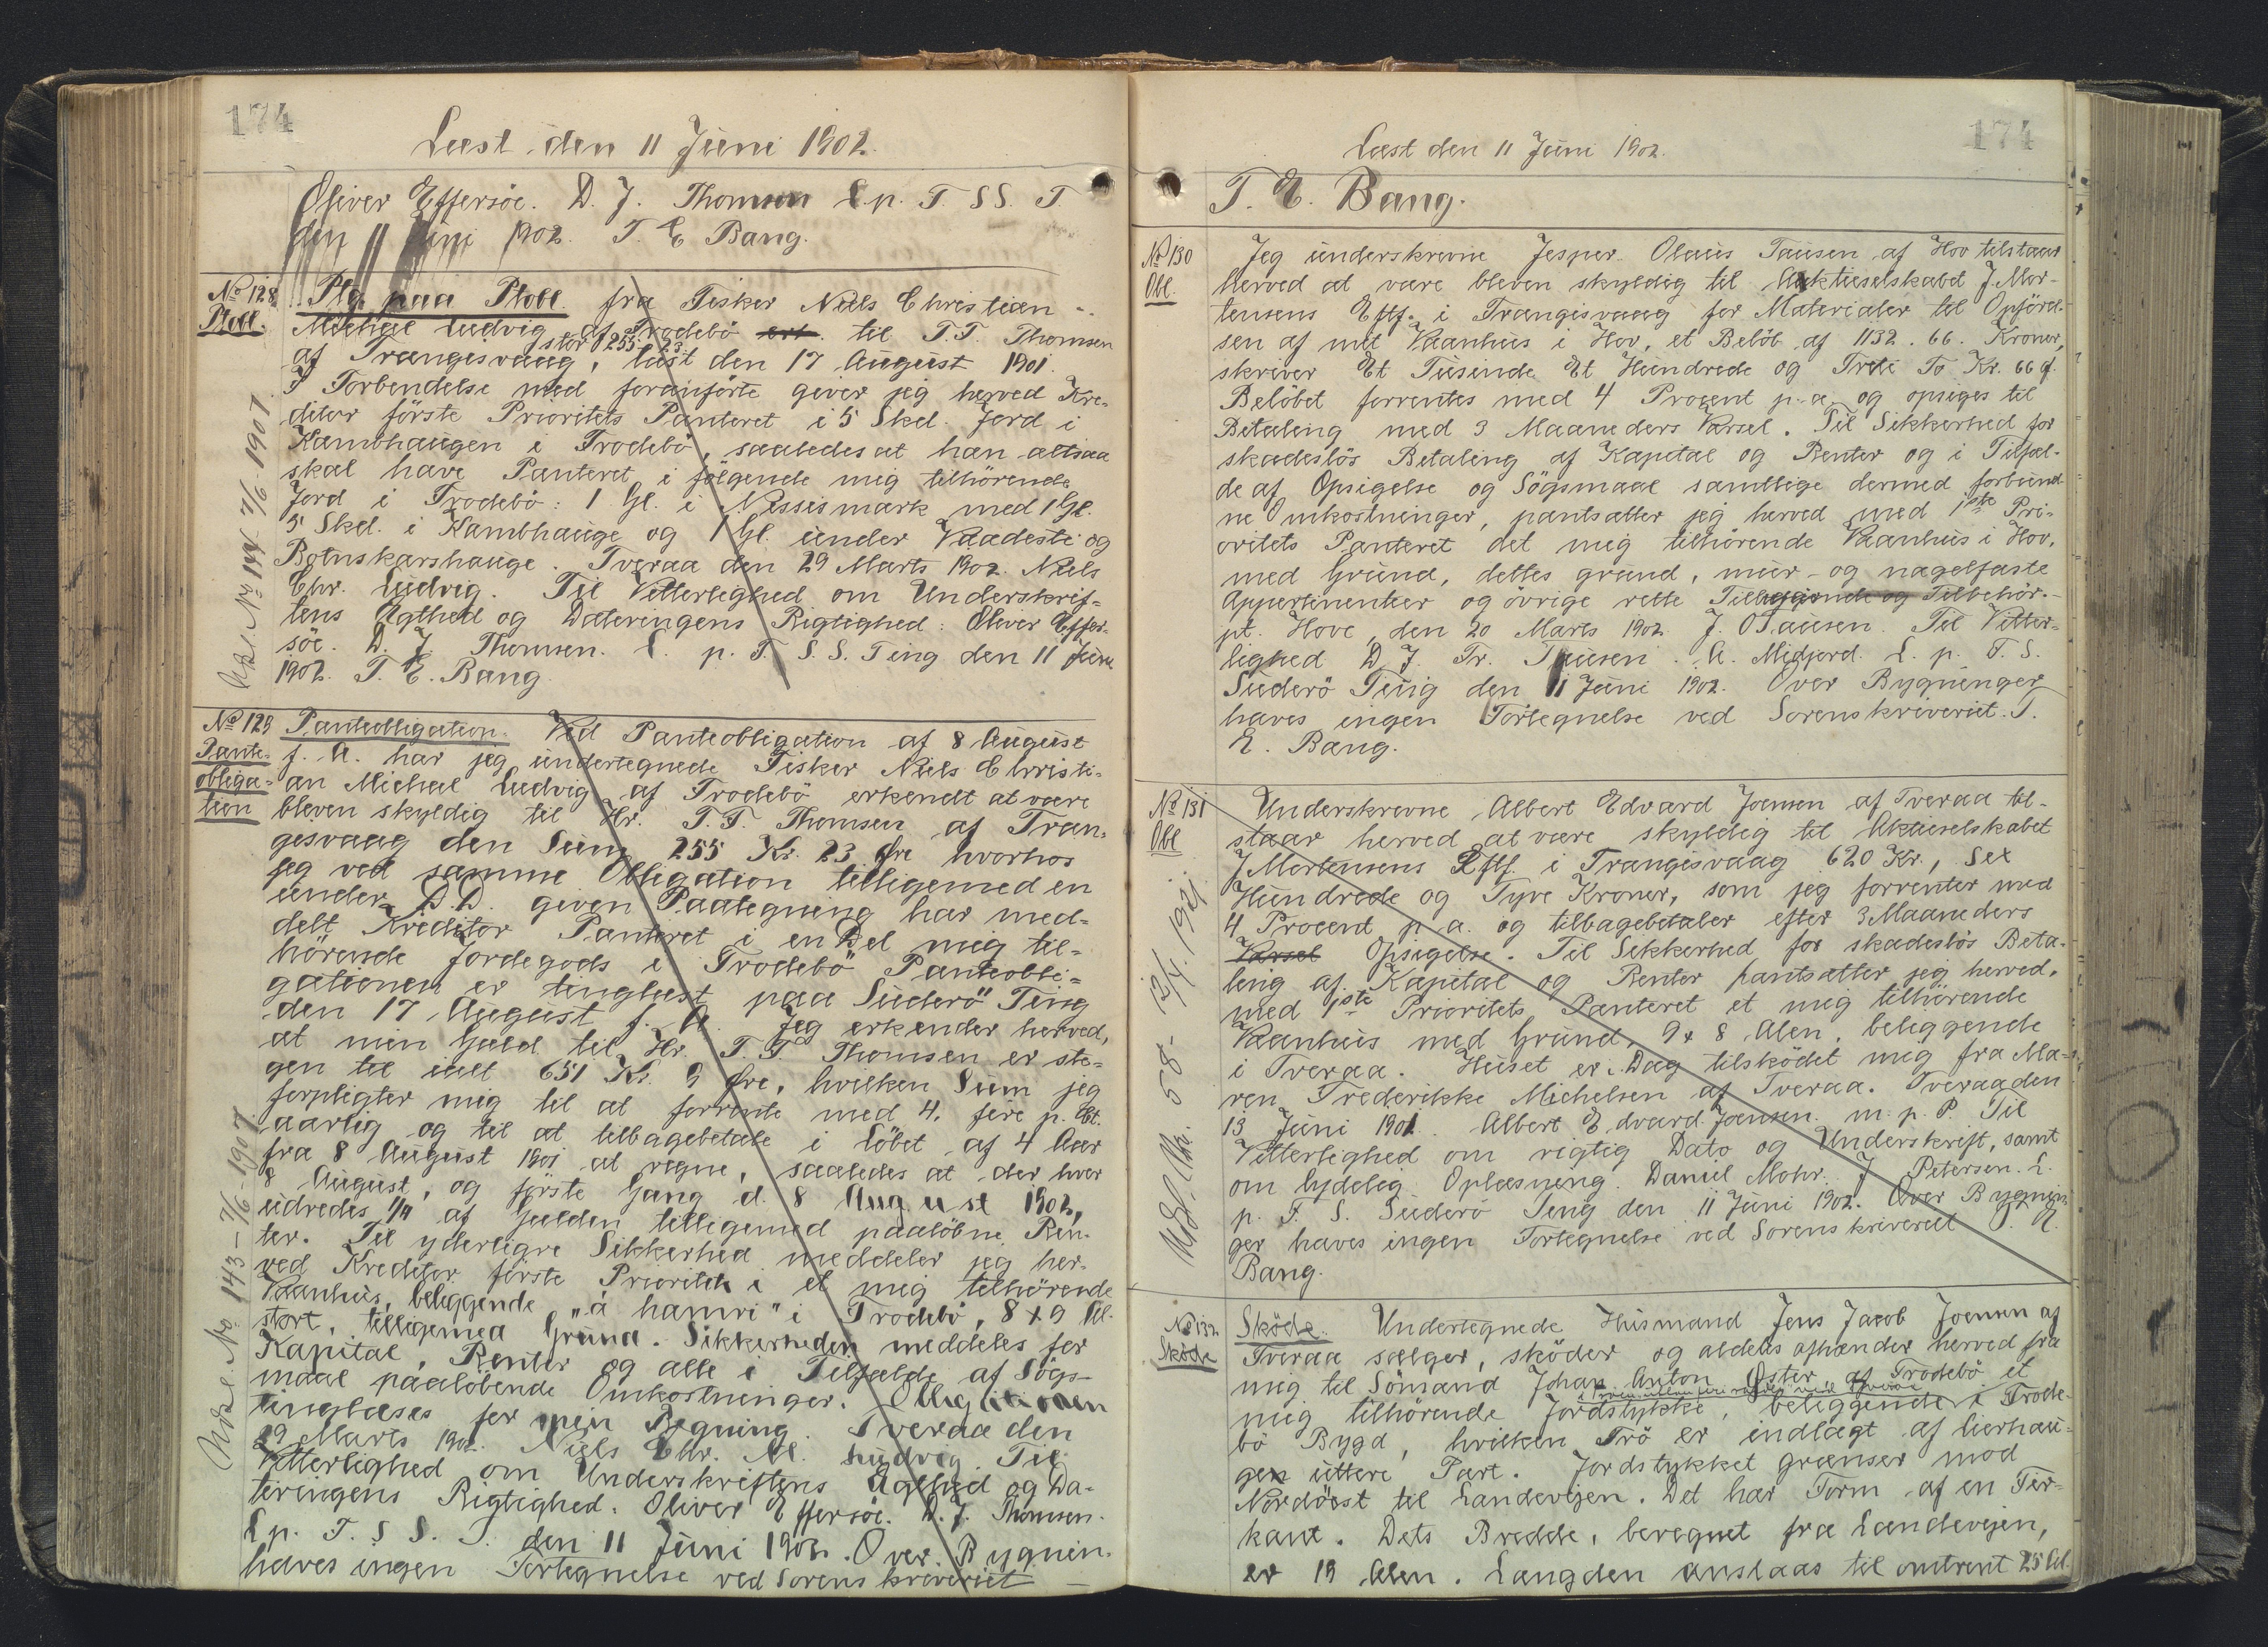 174
Læst den 11 Juni 1902.
Oliver Effersöe. D. J. Thomsen L. p. T. S S. T
den 11 Juni 1902. T. E Bang.
No 128
Ptobl.
Ptg. paa Ptobl. fra Fisker Niels Christian
Michael Ludvig af Frodebö til T. T. Thomsen
stor 255. 23
af Trangisvaag, læst den 17 August 1901.
I Forbendelse med foranförte giver jeg herved Kre-
ditor förste Prioritets Panteret i 5 Skd. Jord i
Kambhaugen i Frodebö, saaledes at han altsaa
skal have Panteret i fölgende mig tilhörende
Jord i Frodebö: 1 Gl. i Nessismark med 1 Gl.
5 Skd. i Kambhauge og 1 Gl. under Vaadesti og
Botnskarshauge. Tveraa den 29 Marts 1902. Niels
Chr. Ludvig. Til Vitterlighed om Underskrif-
tens Ægthed og Dateringens Rigtighed: Oliver Effer-
söe. D. J. Thomsen. L. p. T. S. S. Ting den 11 Juni
1902. T. E. Bang.
Udsl. No 144 7/6-1907
No 129
Pante-
obliga-
tion
Panteobligation. Ved Panteobligation af 8 August
f. A. har jeg undertegnede Fisker Niels Christi-
an Michael Ludvig af Frodebö erkendt at være
bleven skyldig til Hr. T. T. Thomsen af Tran-
gisvaag den Sum 255 Kr. 23 Öre hvorhos
jeg ved samme Obligation tilligemed en
under D. D. given Paategning har med-
delt Kreditor Panteret i en Del mig til-
hörende Jordegods i Frodebö. Panteobli-
gationen er tinglæst paa Suderö Ting
den 17 August f. A. Jeg erkender herved,
at min Gæld til Hr. T. T. Thomsen er ste-
gen til ialt 651 Kr. 9 Öre, hvilken Sum jeg
forpligter mig til at forrente med 4, fire p. Ct.
aarlig og til at tilbagebetale i Löbet af 4 Aar
fra 8 August 1901 at regne, saaledes at der hver
8 August, og förste Gang d. 8 August 1902,
udredes 1/4 af Gælden tilligemed paalöbne Ren-
ter. Til yderligre Sikkerhed meddeler jeg her-
ved Kreditor förste Prioritet i et mig tilhörende
Vaanhus, beliggende "á hamri" i Frodebö, 8 x 9 Al.
stort, tilligemed Grund. Sikkerheden meddeles for
Kapital, Renter og alle i Tilfælde af Sögs-
maal paalöbende Omkostninger. Obligationen
tinglæses for min Regning. Tveraa den
29 Marts 1902. Niels Chr. M. Ludvig. Til
Vitterlighed om Underskriftens Ægthed og Da-
teringens Rigtighed: Oliver Effersöe. D. J. Thomsen.
L. p. T. S S. T. den 11 Juni 1902. Over Bygnin-
haves ingen Fortegnelse ved Sorenskriveriet
Udsl. No 143 - 7/6-1907
174
Læst den 11 Juni 1902.
T. E. Bang.
No 130
Obl.
Jeg underskrevne Jesper Olaus Tausen af Hov tilstaar
herved at være bleven skyldig til Aktieselskabet J. Mor-
tensens Eftf. i Trangisvaag for Materialer til Opförel-
sen af mit Vaanhus i Hov, et Belöb af 1132. 66. Kroner,
skriver Et Tusinde Et Hundrede og Treti To Kr. 66 Ö.
Belöbet forrentes med 4 Procent p. a. og opsiges til
Betaling med 3 Maaneders Varsel. Til Sikkerhed for
skadeslös Betaling af Kapital og Renter og i Tilfæl-
de af Opsigelse og Sögsmaal samtlige dermed forbund-
ne Omkostninger, pantsætter jeg herved med 1ste Pri-
oritets Panteret det mig tilhörende Vaanhus i Hov,
med Grund, dettes grund, mur- og nagelfaste
Appertinentier og övrige rette Tilliggende og Tilbehör.
pt. Hove, den 20 Marts 1902 J. O Tausen. Til Vitter-
lighed D J. Fr. Tausen. A. Midjord. L. p. T. S.
Suderö Ting den 11 Juni 1902. Over Bygninger
haves ingen Fortegnelse ved Sorenskriveriet. T.
E. Bang.
No 131
Obl
Underskrevne Albert Edvard Joensen af Tveraa til-
staar herved at være skyldig til Aktieselskabet
J Mortensens Eftf. i Trangisvaag 620 Kr., Sex
Hundrede og Tyve Kroner, som jeg forrenter med
4 Procent p. a. og tilbagebetaler efter 3 Maaneders
Varsel Opsigelse. Til Sikkerhed for skadeslös Beta-
ling af Kapital og Renter pantsætter jeg herved,
med 1ste Prioritets Panteret et mig tilhörende
Vaanhus med Grund, 9 x 8 Alen, beliggende
i Tveraa. Huset er i Dag tilsködet mig fra Ma-
ren Frederikke Michelsen af Tveraa. Tveraa den
13 Juni 1901. Albert Edvard Joensen. m. p. P. Til
Vitterlighed om rigtig Dato og Underskrift, samt
om lydelig Oplæsning. Daniel Mohr. J Petersen. L.
p. T. S. Suderö Ting den 11 Juni 1902. Over Bygnin-
ger haves ingen Fortegnelse ved Sorenskriveriet T. E.
Bang.
No 132
Sköde
Sköde. Undertegnede Husmand Jens Jacob Joensen af
Tveraa sælger, sköder og aldeles afhænder herved fra
mig til Sömand Johan Anton Öster af Frodebö et
mig tilhörende Jordstykke, beliggende i Frode-
bö Bygd, hvilken Trö er indlagt af Lierhau-
gen uttere Part. Jordstykket grænser mod
Nordöst til Landevejen. Det har Form af en Fir-
kant. Dets Bredde, beregnet fra Landevejen,
er 19 Alen. Længden anslaas til omtrent 25 Al.